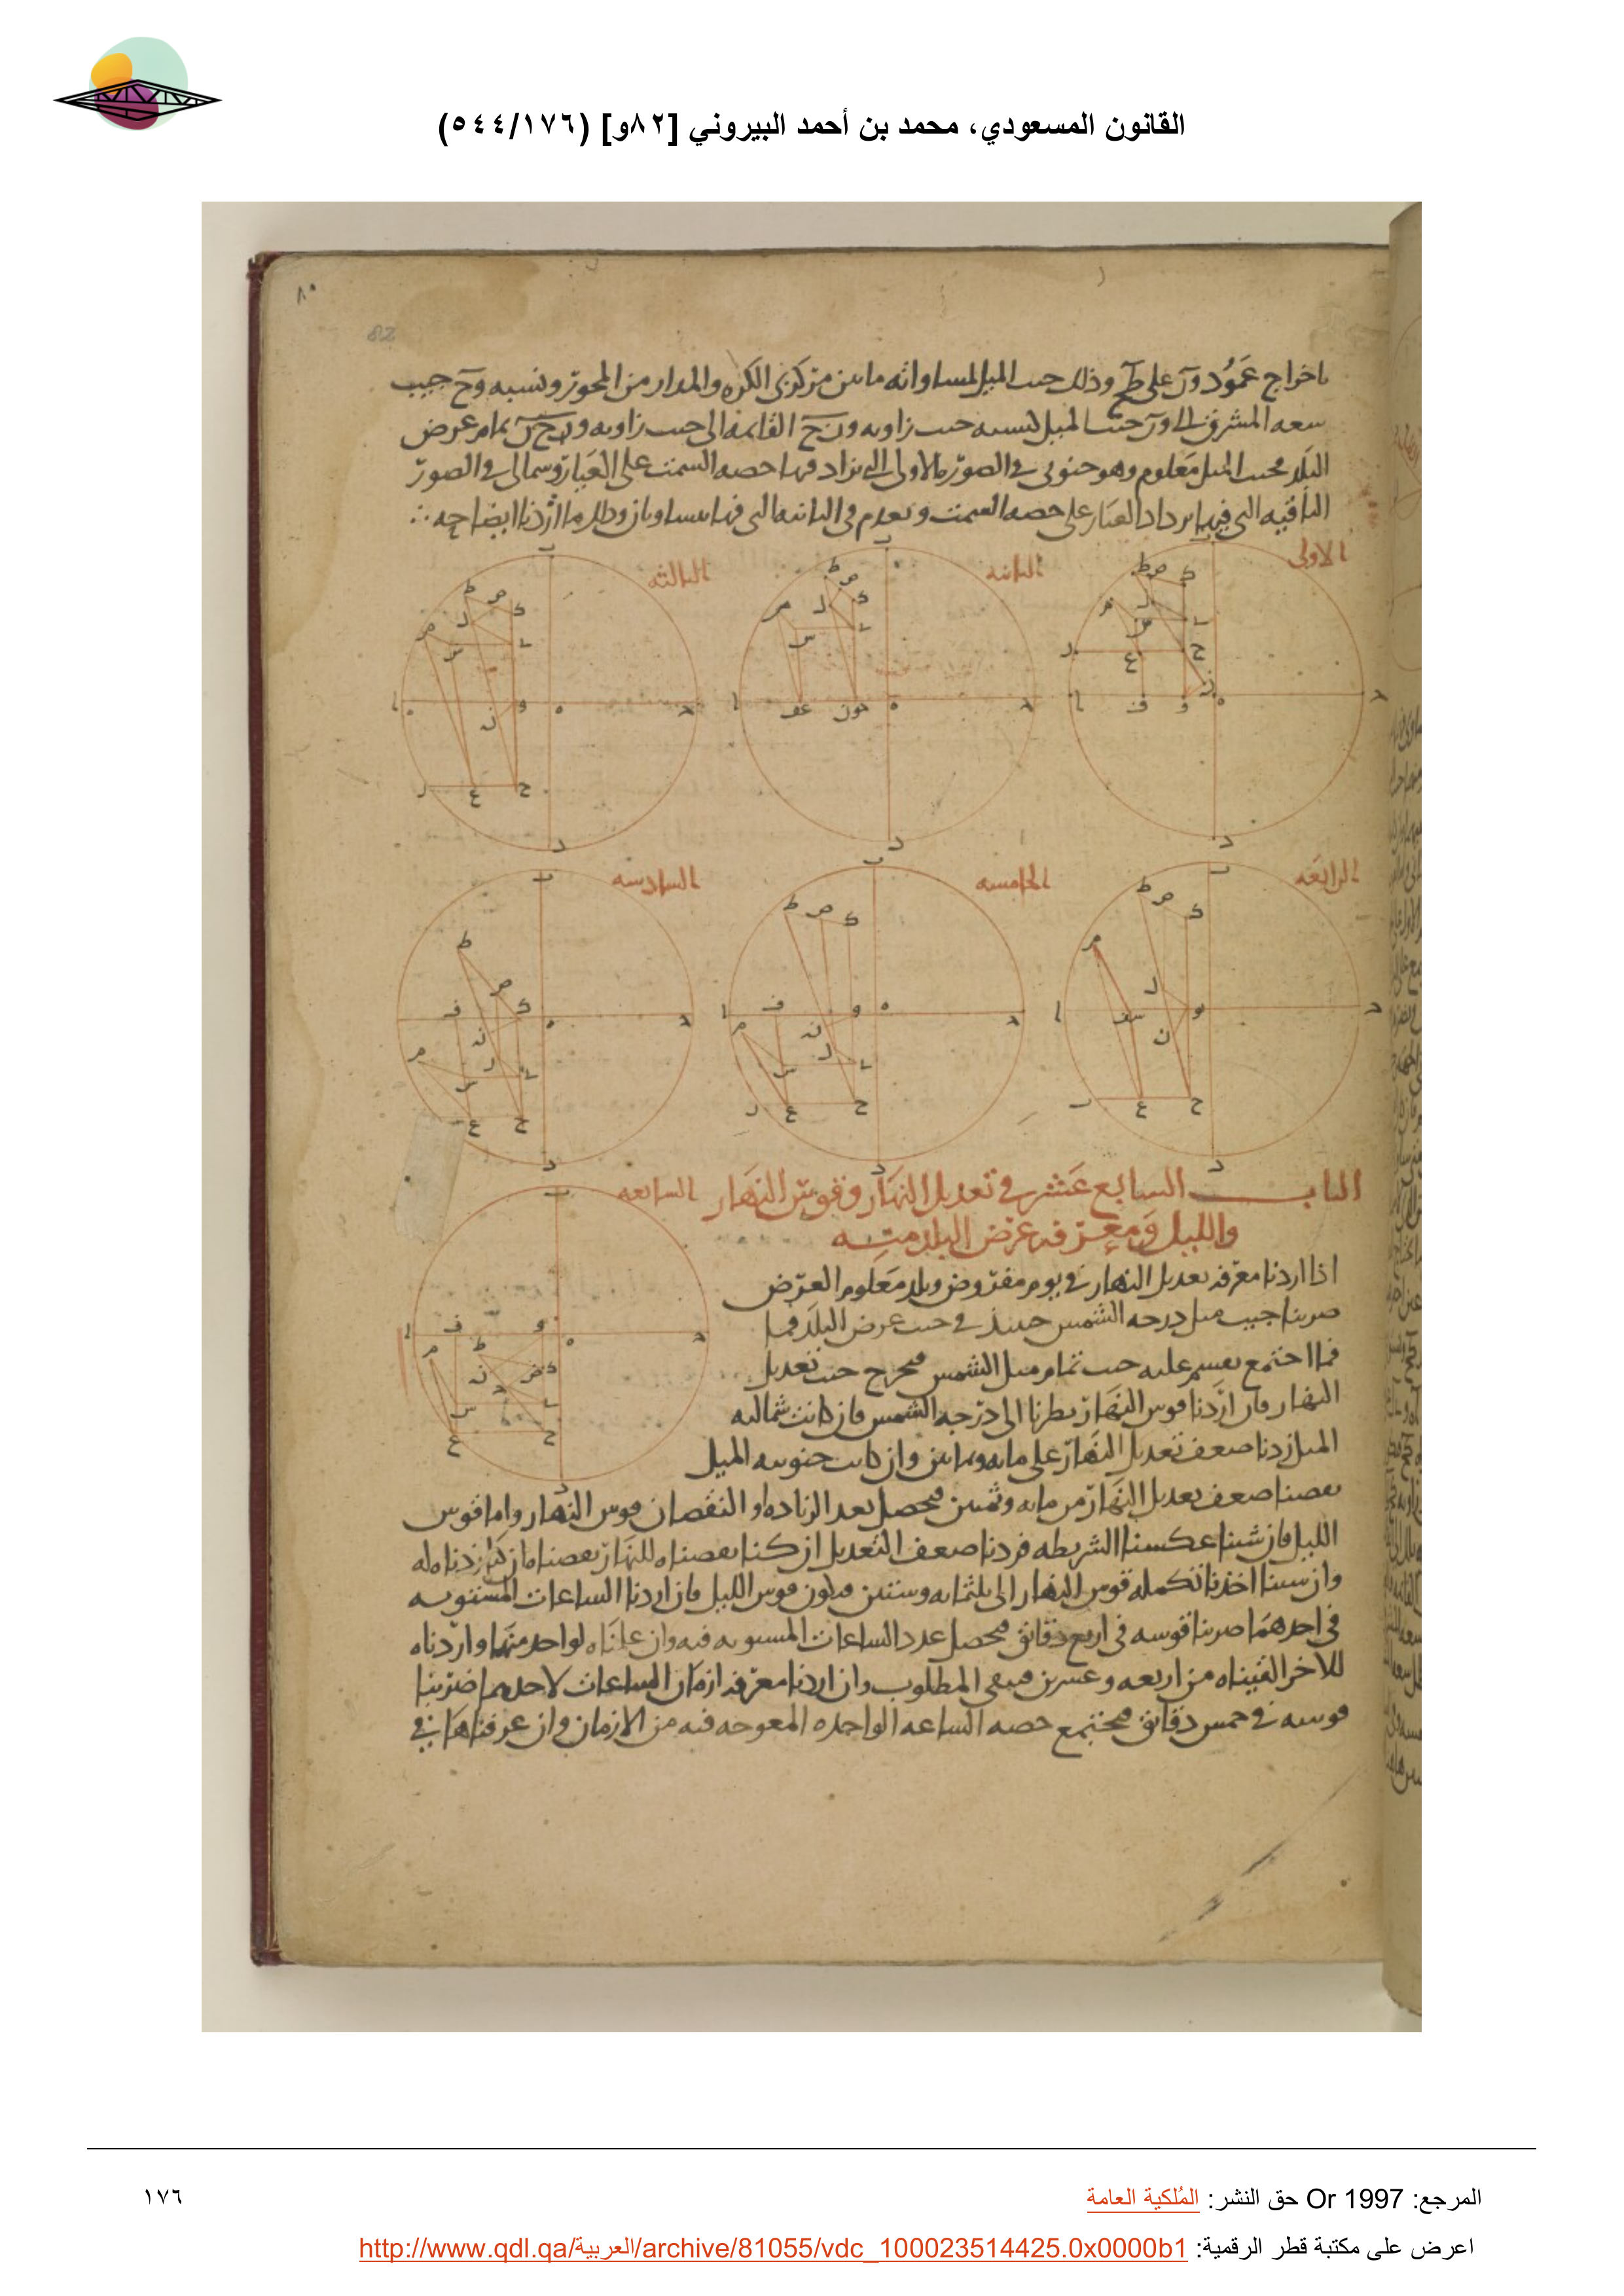 القانون المسعودي، محمد بن أحمد البيروني [٨٢و] (٥٤٤/١٧٦)
82
باخراج عمود ور على طح وذلك جيب الميل لمساواته ما بين مركزى الكره والمدار من المحور ونسبه وح جيب
سعه المشرق الى ور جيب الميل كنسبه جيب زاويه ورح القايمه الى جيب زاويه وحر تمام عرض
البلد فجيب الميل معلوم وهو جنوبى فى الصوره الاولى التى تزاد فيها حصه السمت على العيار وشمالى فى الصور
الباقيه التى فيها يزداد العيار على حصه السمت ويعدم فى الثانيه التى فيها يتساويان وذلك ما اردنا ايضاحه
الاولى
الثانيه
الثالثه
الرابعه
الخامسه
السادسه
الباب السابع عشر فى تعديل النهار وقوس النهار
السابعه
والليل ومعرفه عرض البلد منه
اذا اردنا معرفه تعديل النهار فى يوم مفروض وبلد معلوم العرض
ضربنا جيب ميل درجه الشمس حينئذ فى جيب عرض البلد فما
فما اجتمع نقسم عليه جيب تمام ميل الشمس فيخرج جيب تعديل
النهار فان اردنا قوس النهار نظرنا الى درجه الشمس فان كانت شماليه
الميل زدنا ضعف تعديل النهار على مايه وثمانين وان كانت جنوبيه الميل
نقصنا ضعف تعديل النهار من مايه وثمنين فيحصل بعد الزياده او النقصان قوس النهار واما قوس
الليل فان شينا عكسنا الشريطه فزدنا ضعف التعديل ان كنا نقصناه للنهار ونقصناه ان كنا زدناه له
وان شينا اخذنا تكمله قوس النهار الى ثلثمايه وستين فيكون قوس الليل فان اردنا الساعات المستويه
فى احدهما ضربنا قوسه فى اربع دقايق فيحصل عدد الساعات المستويه فيه وان علمناه لواحد منهما واردناه
للاخر القيناه من اربعه وعشرين فيبقى المطلوب وان اردنا معرفه ازمان الساعات لاحدهما ضربنا
قوسه فى خمس دقايق فيجتمع حصه الساعه الواحده المعوجه فيه من الازمان وان عرفناها فى
المرجع: Or 1997 حق النشر: المُلكية العامة
١٧٦
اعرض على مكتبة قطر الرقمية: http://www.qdl.qa/العربية/archive/81055/vdc_100023514425.0x0000b1